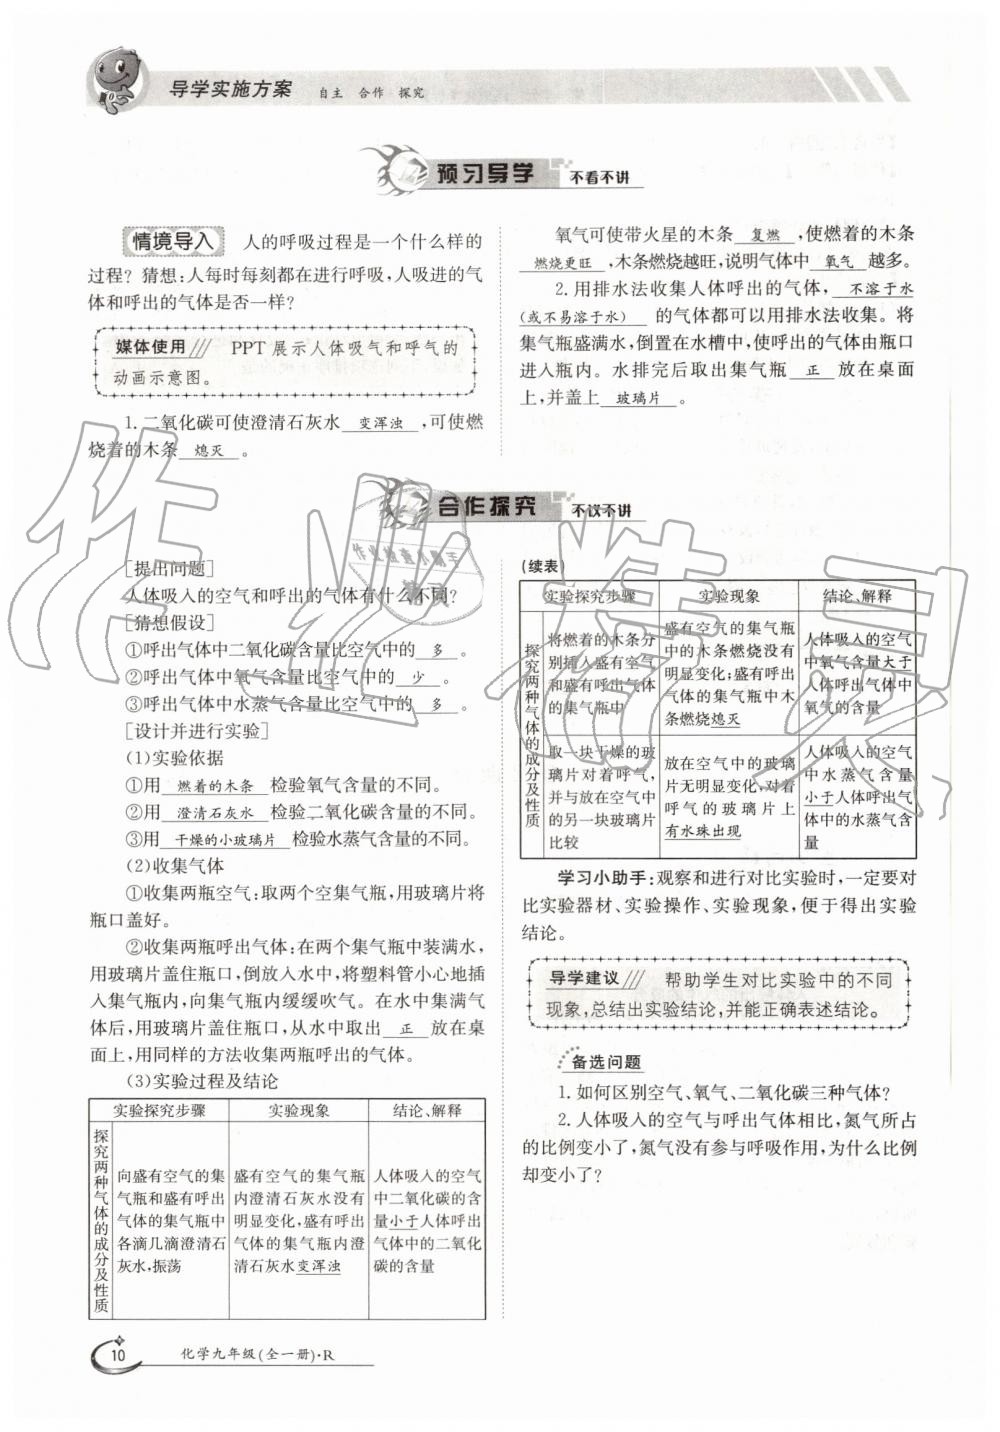 导学实施方案 自主 合作 探究
预习导学 不看不讲
情境导入 人的呼吸过程是一个什么样的
过程?猜想:人每时每刻都在进行呼吸,人吸进的气
体和呼出的气体是否一样?
媒体使用 PPT展示人体吸气和呼气的
动画示意图。
1.二氧化碳可使澄清石灰水 变浑浊 ,可使燃
烧着的木条 熄灭 。
氧气可使带火星的木条 复燃 ,使燃着的木条
燃烧更旺 ,木条燃烧越旺,说明气体中 氧气 越多。
2.用排水法收集人体呼出的气体, 不溶于水
(或不易溶于水) 的气体都可以用排水法收集。将
集气瓶盛满水,倒置在水槽中,使呼出的气体由瓶口
进入瓶内。水排完后取出集气瓶 正 放在桌面
上,并盖上 玻璃片 。
合作探究 不议不讲
[提出问题]
人体吸入的空气和呼出的气体有什么不同?
[猜想假设]
①呼出气体中二氧化碳含量比空气中的 多 。
②呼出气体中氧气含量比空气中的 少 。
③呼出气体中水蒸气含量比空气中的 多 。
[设计并进行实验]
(1)实验依据
①用 燃着的木条 检验氧气含量的不同。
②用 澄清石灰水 检验二氧化碳含量的不同。
③用 干燥的小玻璃片 检验水蒸气含量的不同。
(2)收集气体
①收集两瓶空气:取两个空集气瓶,用玻璃片将
瓶口盖好。
②收集两瓶呼出气体:在两个集气瓶中装满水,
用玻璃片盖住瓶口,倒放入水中,将塑料管小心地插
入集气瓶内,向集气瓶内缓缓吹气。在水中集满气
体后,用玻璃片盖住瓶口,从水中取出 正 放在桌
面上,用同样的方法收集两瓶呼出的气体。
(3)实验过程及结论
实验探究步骤 实验现象 结论、解释
探究两种气体的成分及性质
向盛有空气的集
气瓶和盛有呼出
气体的集气瓶中
各滴几滴澄清石
灰水,振荡
盛有空气的集气瓶
内澄清石灰水没有
明显变化,盛有呼出
气体的集气瓶内澄
清石灰水变浑浊
人体吸入的空气
中二氧化碳的含
量小于人体呼出
气体中的二氧化
碳的含量
(续表)
实验探究步骤 实验现象 结论、解释
探究两种气体的成分及性质
将燃着的木条分
别插入盛有空气
和盛有呼出气体
的集气瓶中
盛有空气的集气瓶
中的木条燃烧没有
明显变化;盛有呼出
气体的集气瓶中木
条燃烧熄灭
人体吸入的空气
中氧气含量大于
人体呼出气体中
氧气的含量
取一块干燥的玻
璃片对着呼气,
并与放在空气中
的另一块玻璃片
比较
放在空气中的玻璃
片无明显变化,对着
呼气的玻璃片上
有水珠出现
人体吸入的空气
中水蒸气含量
小于人体呼出气
体中的水蒸气含
量
学习小助手:观察和进行对比实验时,一定要对
比实验器材、实验操作、实验现象,便于得出实验
结论。
导学建议 帮助学生对比实验中的不同
现象,总结出实验结论,并能正确表述结论。
备选问题
1.如何区别空气、氧气、二氧化碳三种气体?
2.人体吸入的空气与呼出气体相比,氮气所占
的比例变小了,氮气没有参与呼吸作用,为什么比例
却变小了?
10 化学九年级(全一册)·R
作业精灵
作业检查小助手